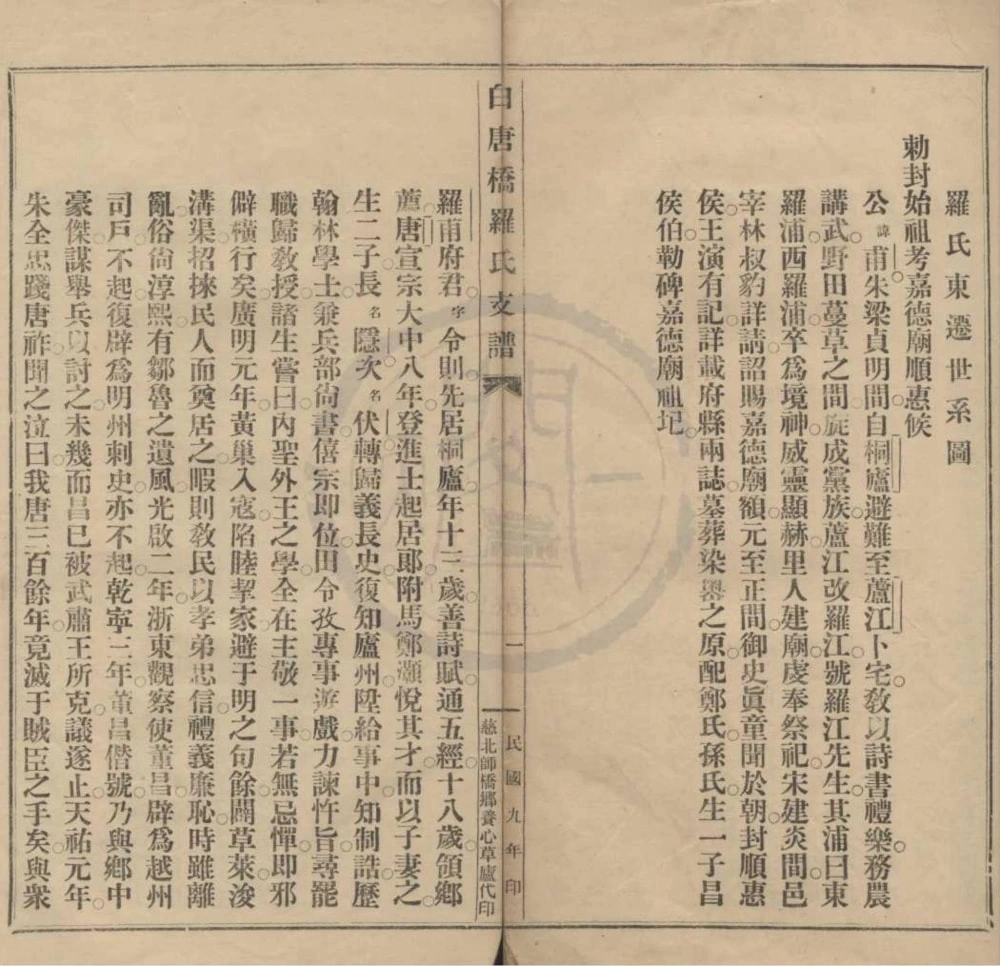 羅氏東遷世系圖
勅封始祖考嘉德廟順惠候
公諱甫朱梁貞明間自桐廬避難至蘆江卜宅教以詩書禮樂務農
講武野田蔓草之間旋成黨族蘆江改羅江號羅江先生其浦曰東
羅浦西羅浦卒為境神威靈顯赫里人建廟虔奉祭祀宋建炎間邑
宰林叔豹詳請詔賜嘉德廟額元至正間御史眞童聞於朝封順惠
侯王演有記詳載府縣兩誌墓葬染嶴之原配鄭氏孫氏生一子昌
侯伯勒碑嘉德廟祖圮
白唐橋羅氏支譜
一
民國九年印
慈北師橋鄉養心草廬代印
羅甫府君字令則先居桐廬年十三歲善詩賦通五經十八歲領鄉
薦唐宣宗大中八年登進士起居郞附馬鄭灝悅其才而以子妻之
生二子長名隱次名伏轉歸義長史復知廬州陞給事中知制誥歷
翰林學士兼兵部尙書僖宗即位田令孜專事遊戲力諫忤旨尋罷
職歸敎授諸生嘗曰內聖外王之學全在主敬一事若無忌憚即邪
僻橫行矣廣明元年黃巢入寇陷睦挈家避于明之句餘闢草萊浚
溝渠招捸民人而奠居之暇則敎民以孝弟忠信禮義廉恥時雖離
亂俗尙淳熙有鄒魯之遺風光啟二年浙東觀察使董昌辟爲越州
司戶不起復辟爲明州刺史亦不起乾寧二年董昌僭號乃與鄉中
豪傑謀舉兵以討之未幾而昌已被武肅王所克議遂止天祐元年
朱全忠踐唐祚聞之泣曰我唐三百餘年竟滅于賊臣之手矣與衆